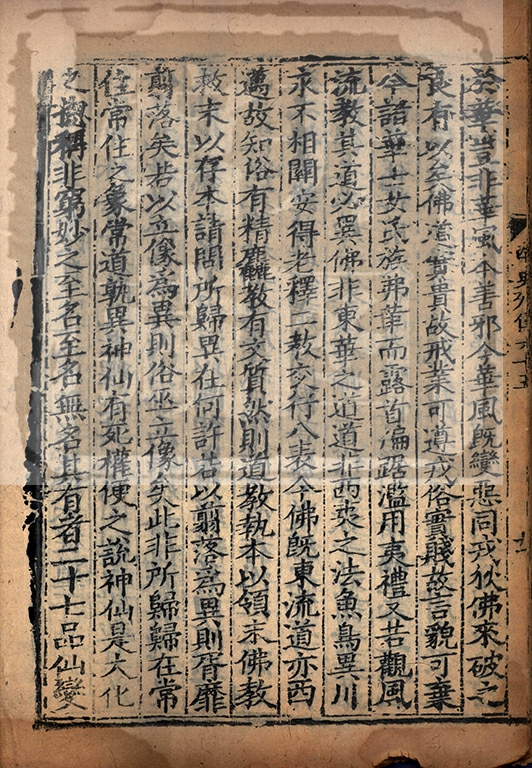 於華豈非華風本善邪今華風既變惡同戎狄佛來破之
良有以矣佛道實貴故戒業可遵戎俗實賤故言貌可棄
今諸華士女氏族弗革而露首偏踞濫用夷禮又若觀風
流教其道必異佛非東華之道道非西夷之法魚鳥異川
永不相關安得老釋二教交行八表今佛既東流道亦西
邁故知俗有精麤教有文質然則道教執本以領末佛教
救末以存本請問所歸異在何許若以翦落為異則胥靡
翦落矣若以立像為異則俗巫立像矣此非所歸歸在常
住常住之象常道孰異神仙有死權便之說神仙是大化
之總稱非窮妙之至名至名無名其有者二十七品仙變